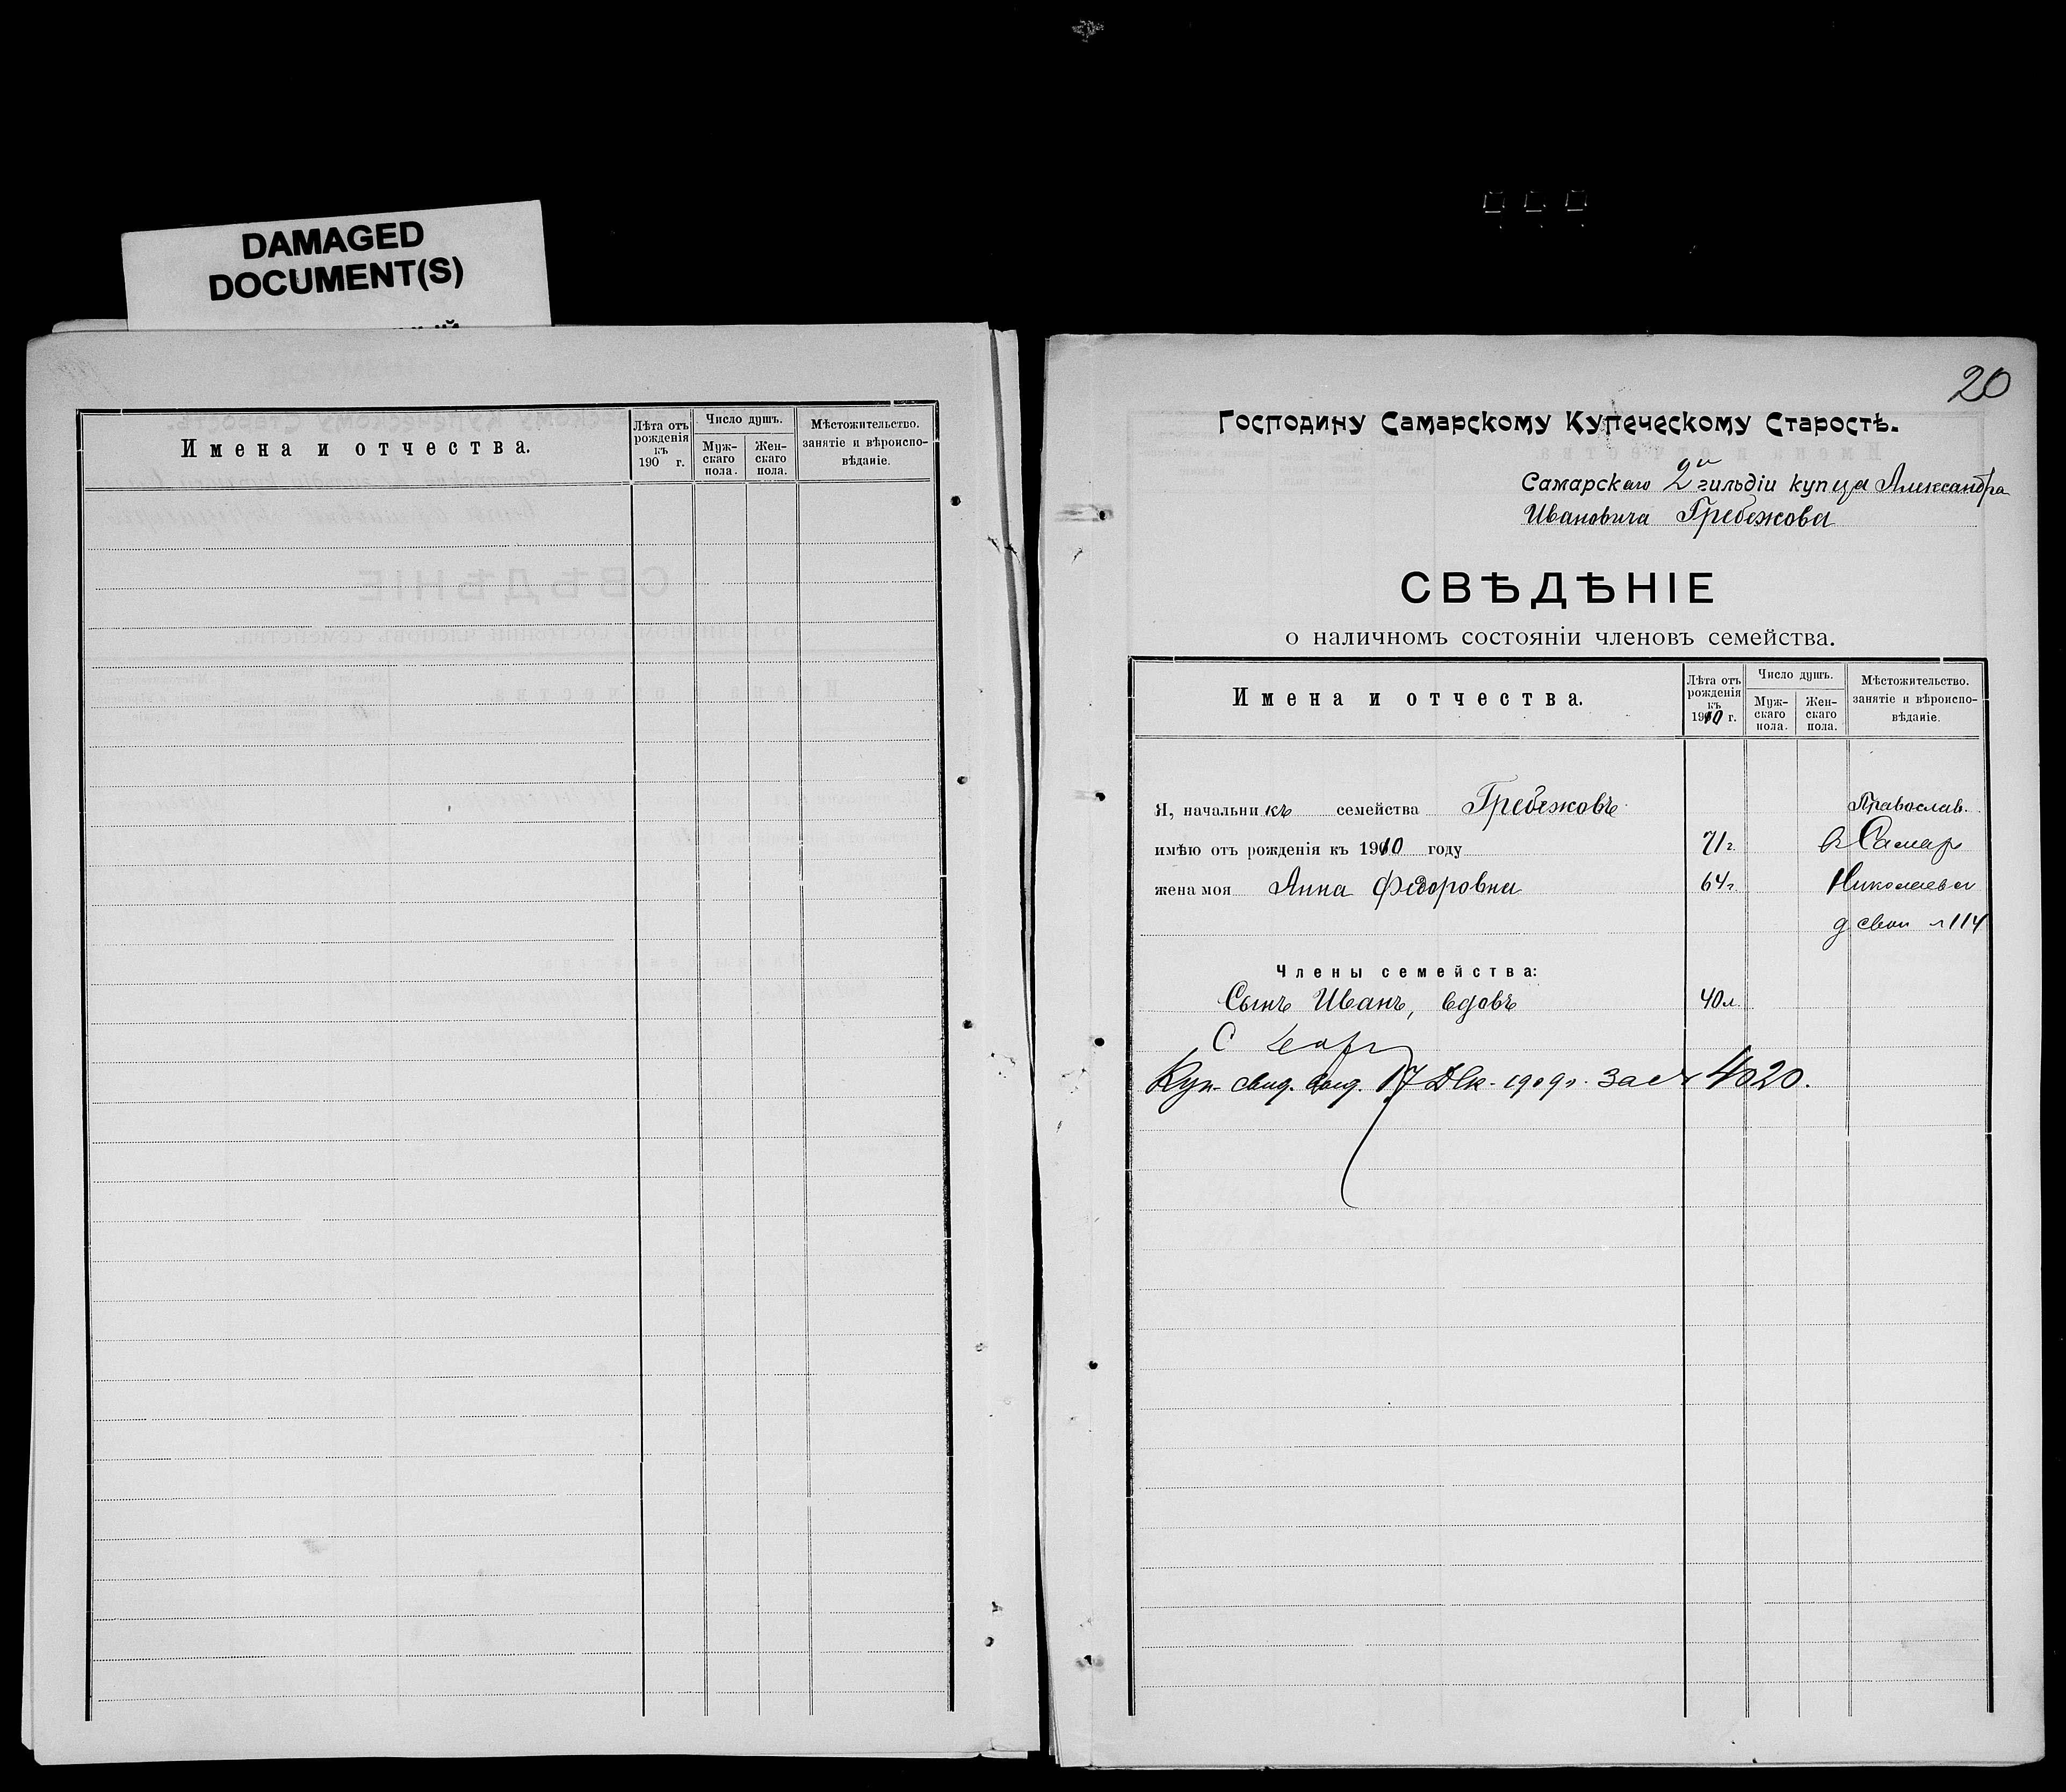 DAMAGED
DOCUMENT(S)
Имена и отчества.
Лѣта отъ рожденія къ 190 г.
Число душъ.
Муж-скаго пола.
Жен-скаго пола.
Мѣстожительство. занятіе и вѣроиспо-вѣданіе.
20
Господину Самарскому Купеческому Старостѣ.
Самарскаго 2й гильдіи купца Александра
Ивановича Гребежкова
СВѢДѢНІЕ
о наличномъ состояніи членовъ семейства.
Имена и отчества.
Лѣта отъ рожденія къ 1910 г.
Число душъ.
Муж-скаго пола.
Жен-скаго пола.
Мѣстожительство. занятіе и вѣроиспо-вѣданіе.
Я, начальникъ семейства Гребежковъ Православ.
имѣю отъ рожденія къ 1910 году 71 г. в Самар
жена моя Анна Федоровна 64 г. Николаевск
д свои № 114
Члены семейства:
Сынъ Иванъ, вдовъ 40 л.
Куп. свид. выд. 17 Дек. 1909 г. за № 4020.